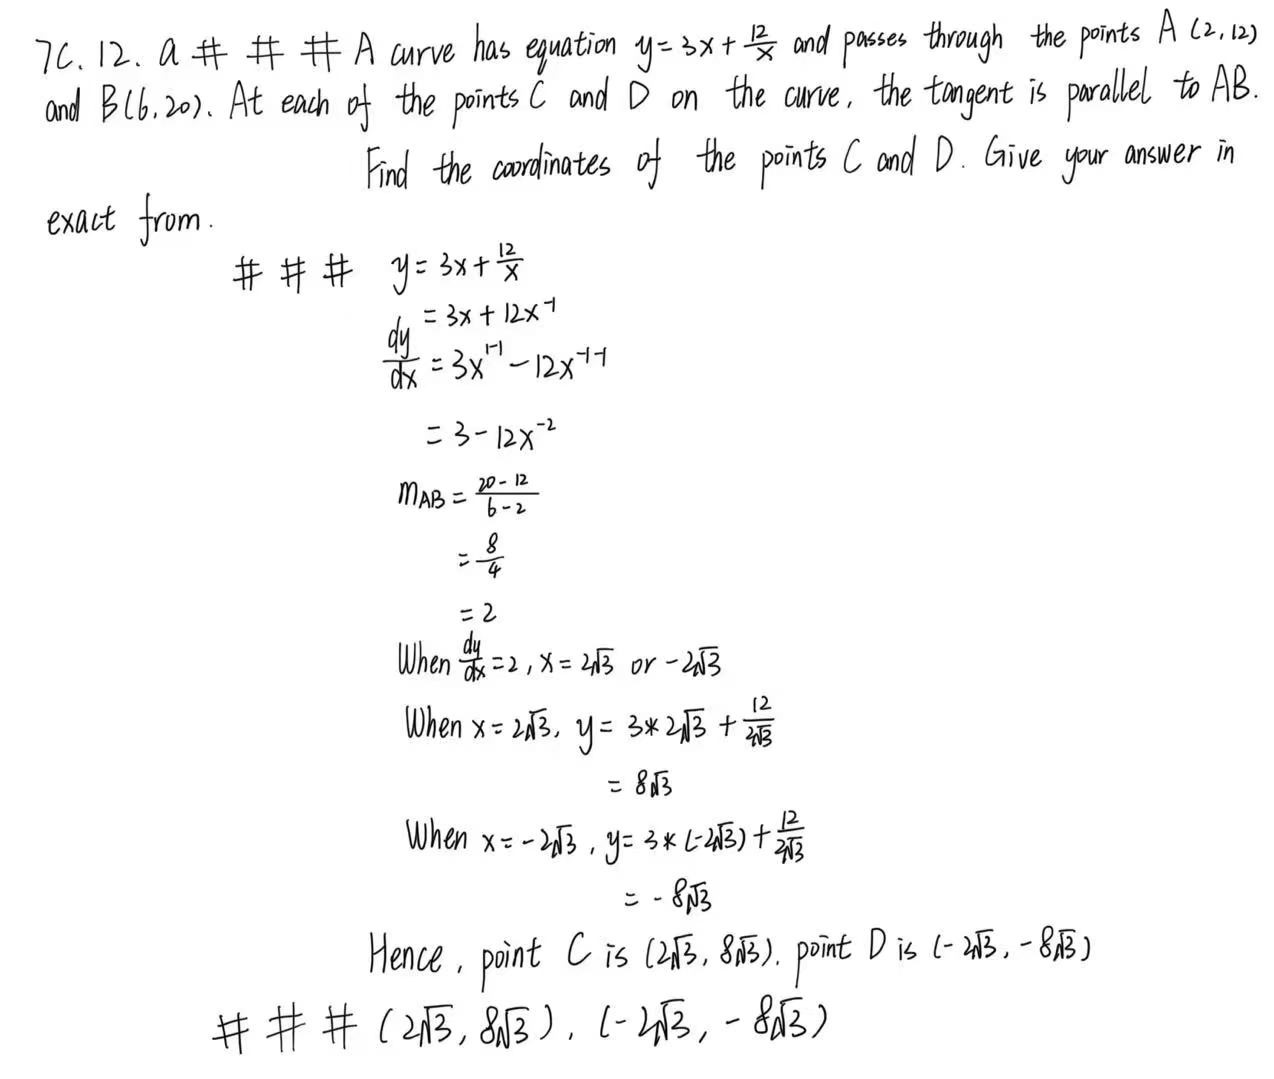 7C. 12. a # # # A curve has equation y = 3x + 12/x and passes through the points A (2, 12)
and B(6, 20). At each of the points C and D on the curve, the tangent is parallel to AB.
Find the coordinates of the points C and D. Give your answer in
exact from.
# # # y = 3x + 12/x
= 3x + 12x⁻¹
dy/dx = 3x¹⁻¹ − 12x⁻¹⁻¹
= 3 − 12x⁻²
m_AB = (20 − 12)/(6 − 2)
= 8/4
= 2
When dy/dx = 2, x = 2√3 or −2√3
When x = 2√3, y = 3 * 2√3 + 12/2√3
= 8√3
When x = −2√3, y = 3 * (−2√3) + 12/2√3
= − 8√3
Hence, point C is (2√3, 8√3). point D is (−2√3, −8√3)
# # # (2√3, 8√3), (−2√3, −8√3)